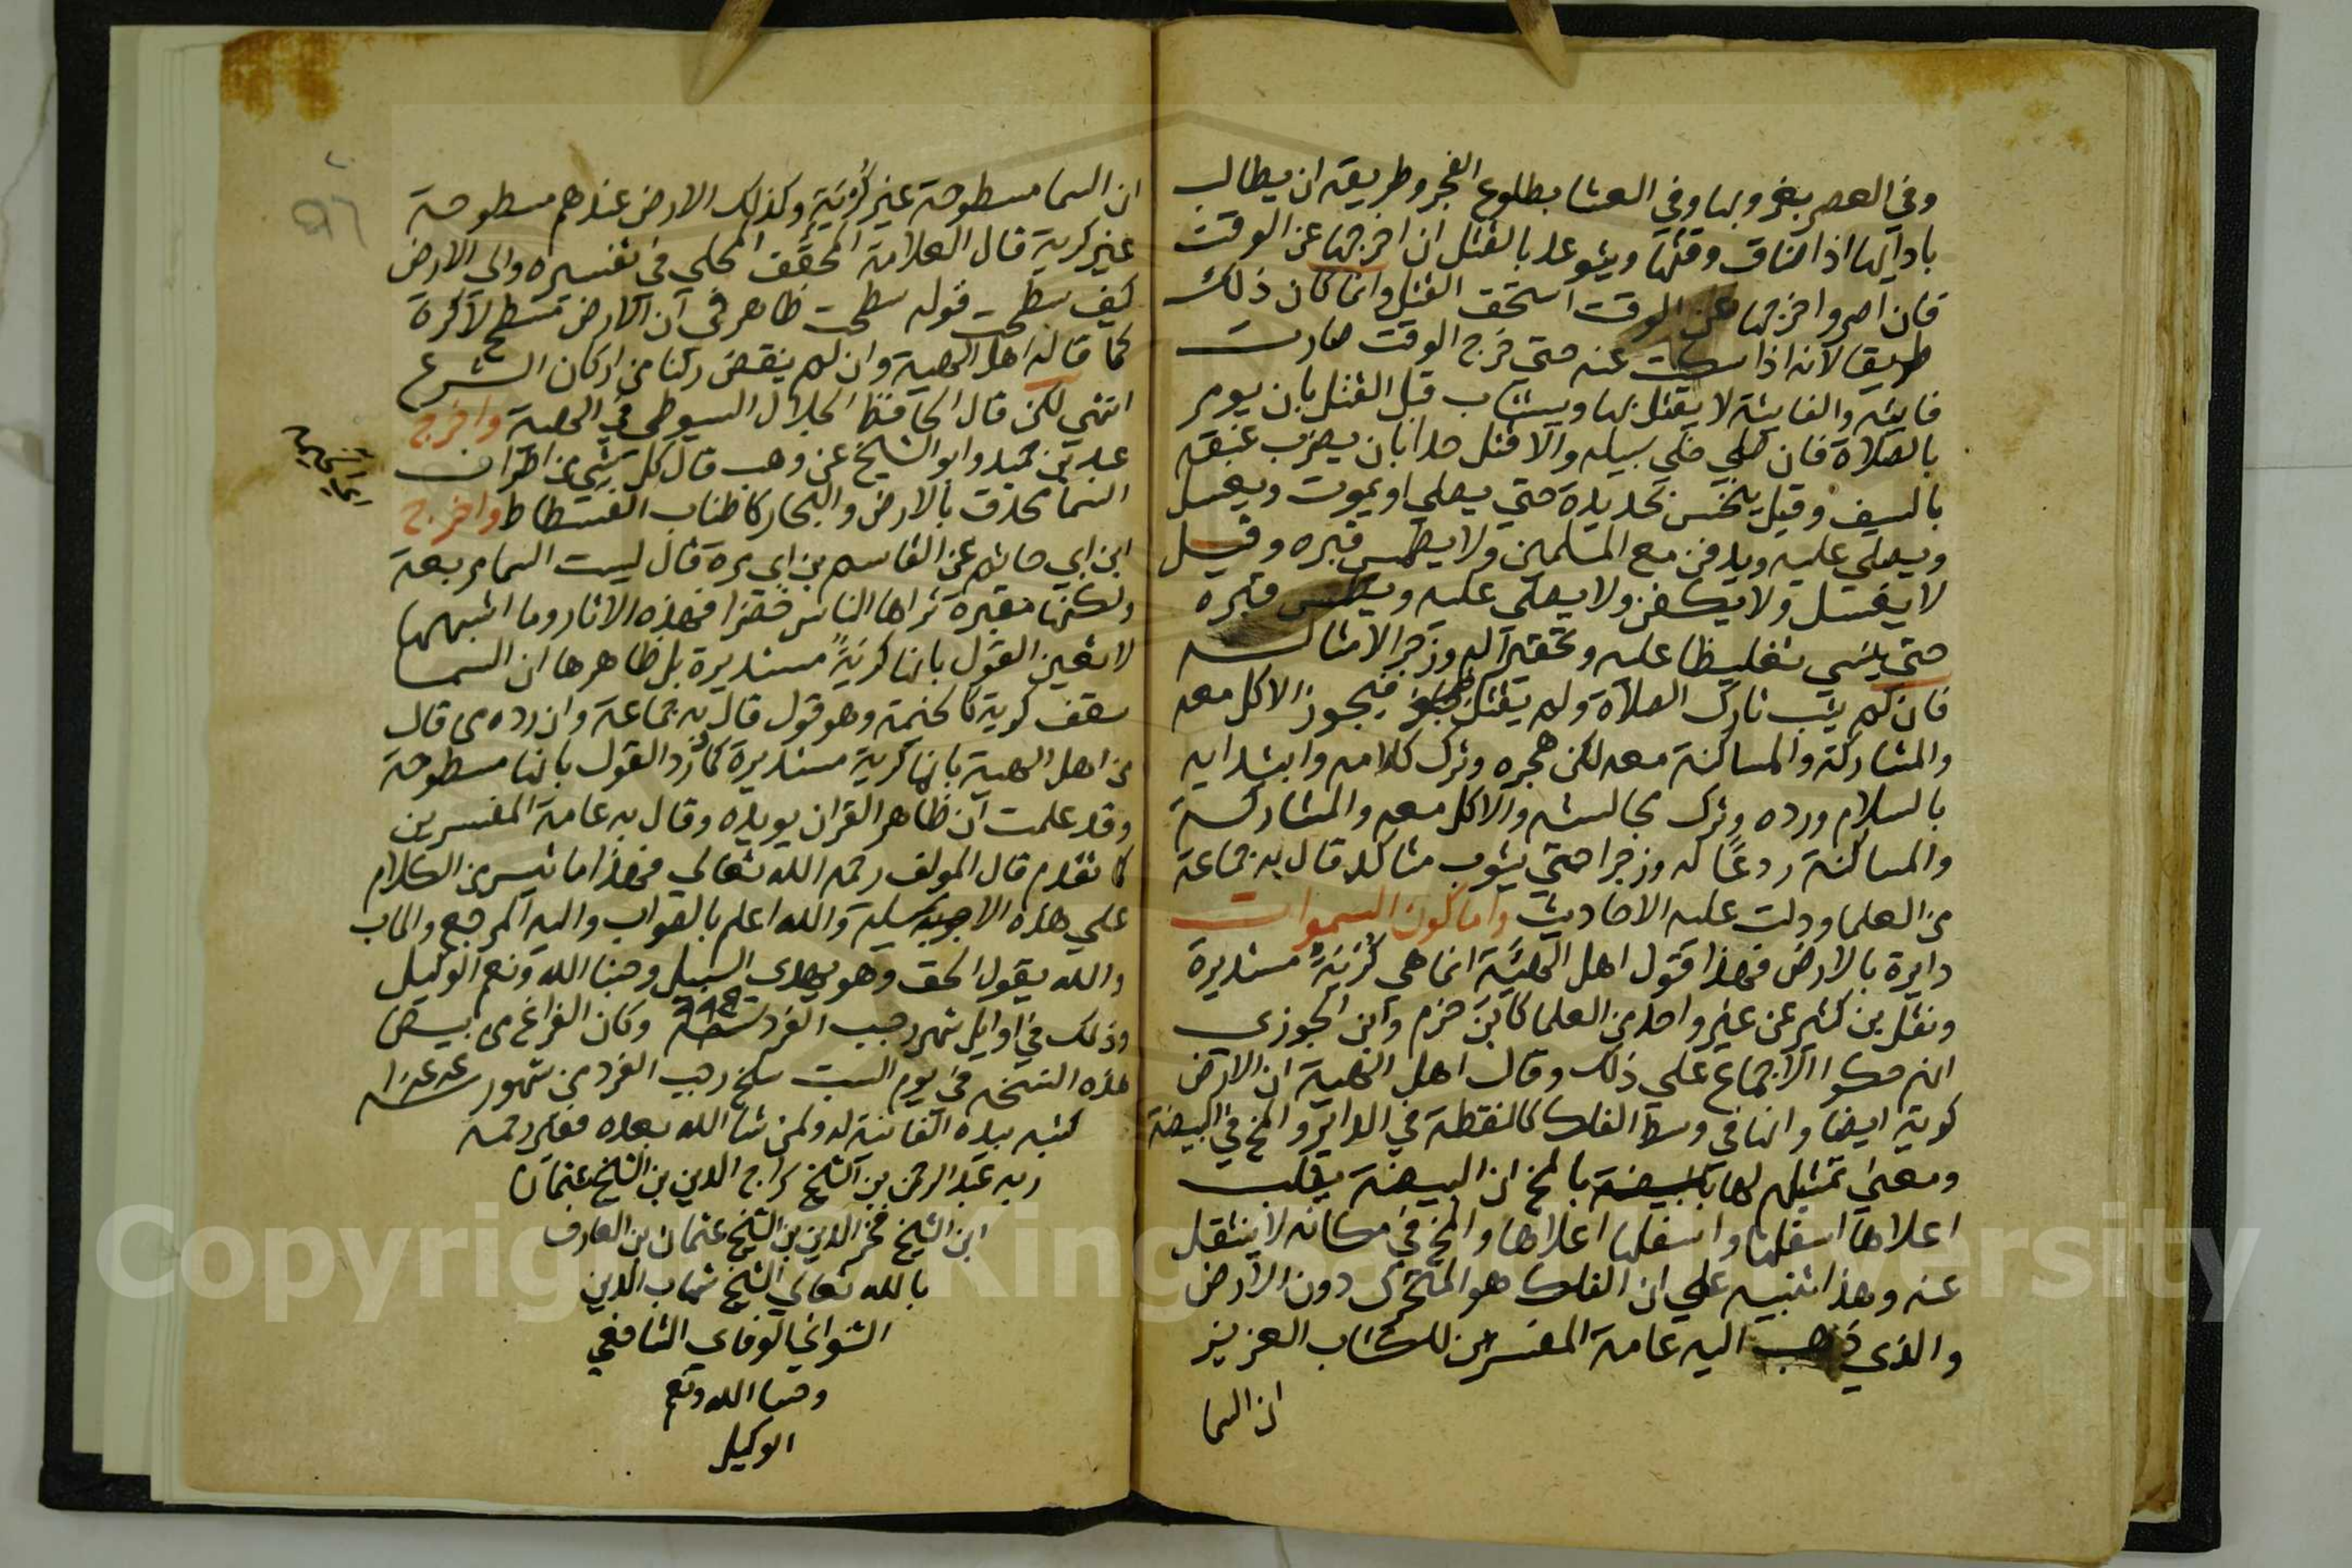 وفي العصر بغروبها وفي العشا بطلوع الفجر وطريقه ان يطالب
بادايها اذا ضاق وقتها ويتوعد بالقتل ان اخرجها عن الوقت
فان اصر واخرجها عن الوقت استحق القتل وانما كان ذلك
طريقا لانه اذا سكت عنه حتي خرج الوقت صارت
فايته والفايتة لا يقتل بها ويستتاب قبل القتل بان يومر
بالصلاة فان صلي خلي سبيله والا قتل حدا بان يضرب عنقه
بالسيف وقيل ينخس بحديدة حتي يصلي او يموت ويغسل
ويصلي عليه ويدفن مع المسلمين ولا يطمس قبره وقيل
لا يغسل ولا يكفن ولا يصلي عليه ويطمس قبره
حتي ينسي تغليظا عليه وتحقيرا له وزجرا لامثاله
فان لم يتب تارك الصلاة ولم يقتل فيجوز الاكل معه
والمشاركة والمساكنة معه لكن هجره وترك كلامه وابتدايه
بالسلام ورده وترك مجالسته والاكل معه والمشاركة
والمساكنة ردعا له وزجرا حتي يتوب متاكد قال به جماعة
من العلما ودلت عليه الاحاديث واما كون السموات
دايرة بالارض فهذا قول اهل الهيئة انما هي كرية مستديرة
ونقل بن كثير عن غير واحد من العلما كابن حزم وابن الجوزي
انهم حكوا الاجماع علي ذلك وقال اهل الهية ان الارض
كرية ايضا وانها في وسط الفلك كالنقطة في الداير والمخ في البيضة
ومعني تمثيلهم لها بالبيضة بالمخ ان البيضة يقلب
اعلاها اسفلها واسفلها اعلاها والمخ في مكانه لا ينتقل
عنه وهذا تنبيه علي ان الفلك هو المتحرك دون الارض
والذي ذهب اليه عامة المفسرين للكتاب العزيز
ان السما
ان السما مسطوحة غير كرية وكذلك الارض عندهم مسطوحة
غير كرية قال العلامة المحقق المحلي في تفسيره والي الارض
كيف سطحت قوله سطحت ظاهر في ان الارض تسطح لا كرة
كما قاله اهل الهية وان لم ينقض ركنا من اركان الشرع
انتهي لكن قال الحافظ الجلال السيوطي في الهية واخرج
عبد بن حميد وابو الشيخ عن وهب قال كل شي من اطراف
السما محدق بالارض والبحار كاطناب الفسطاط واخرج
ابن ابي حاتم عن القاسم بن ابي بزة قال ليست السما مربعة
ولكنها مقبرة تراها الناس خضرا فهذه الاثار وما اشبهها
لا تعين القول بانها كرية مستديرة بل ظاهرها ان السما
سقف كرية كالخيمة وهو قول قال به جماعة وان رده من قال
من اهل الهية بانها كرية مستديرة كما رد القول بانها مسطوحة
وقد علمت ان ظاهر القران يويده وقال به عامة المفسرين
كما تقدم قال المولف رحمه الله تعالي فهذا ما تيسر من الكلام
علي هذه الاجوبة والله اعلم بالصواب واليه المرجع والماب
والله يقول الحق وهو يهدي السبيل وحسبنا الله ونعم الوكيل
وذلك في اوايل شهر رجب الفرد سنة وكان الفراغ من بييض
هذه النسخه في يوم السبت سلخ رجب الفرد من شهور سنه
كتبه بيده الفانية له ولمن شا الله بعده فقير رحمة
ربه عبد الرحمن بن الشيخ سراج الدين بن الشيخ عثمان
ابن الشيخ فخر الدين بن الشيخ عثمان بن العارف
بالله تعالي الشيخ شهاب الدين
الشواني الوفاي الشافعي
وحسبنا الله ونعم
الوكيل
Copyright © King Saud University